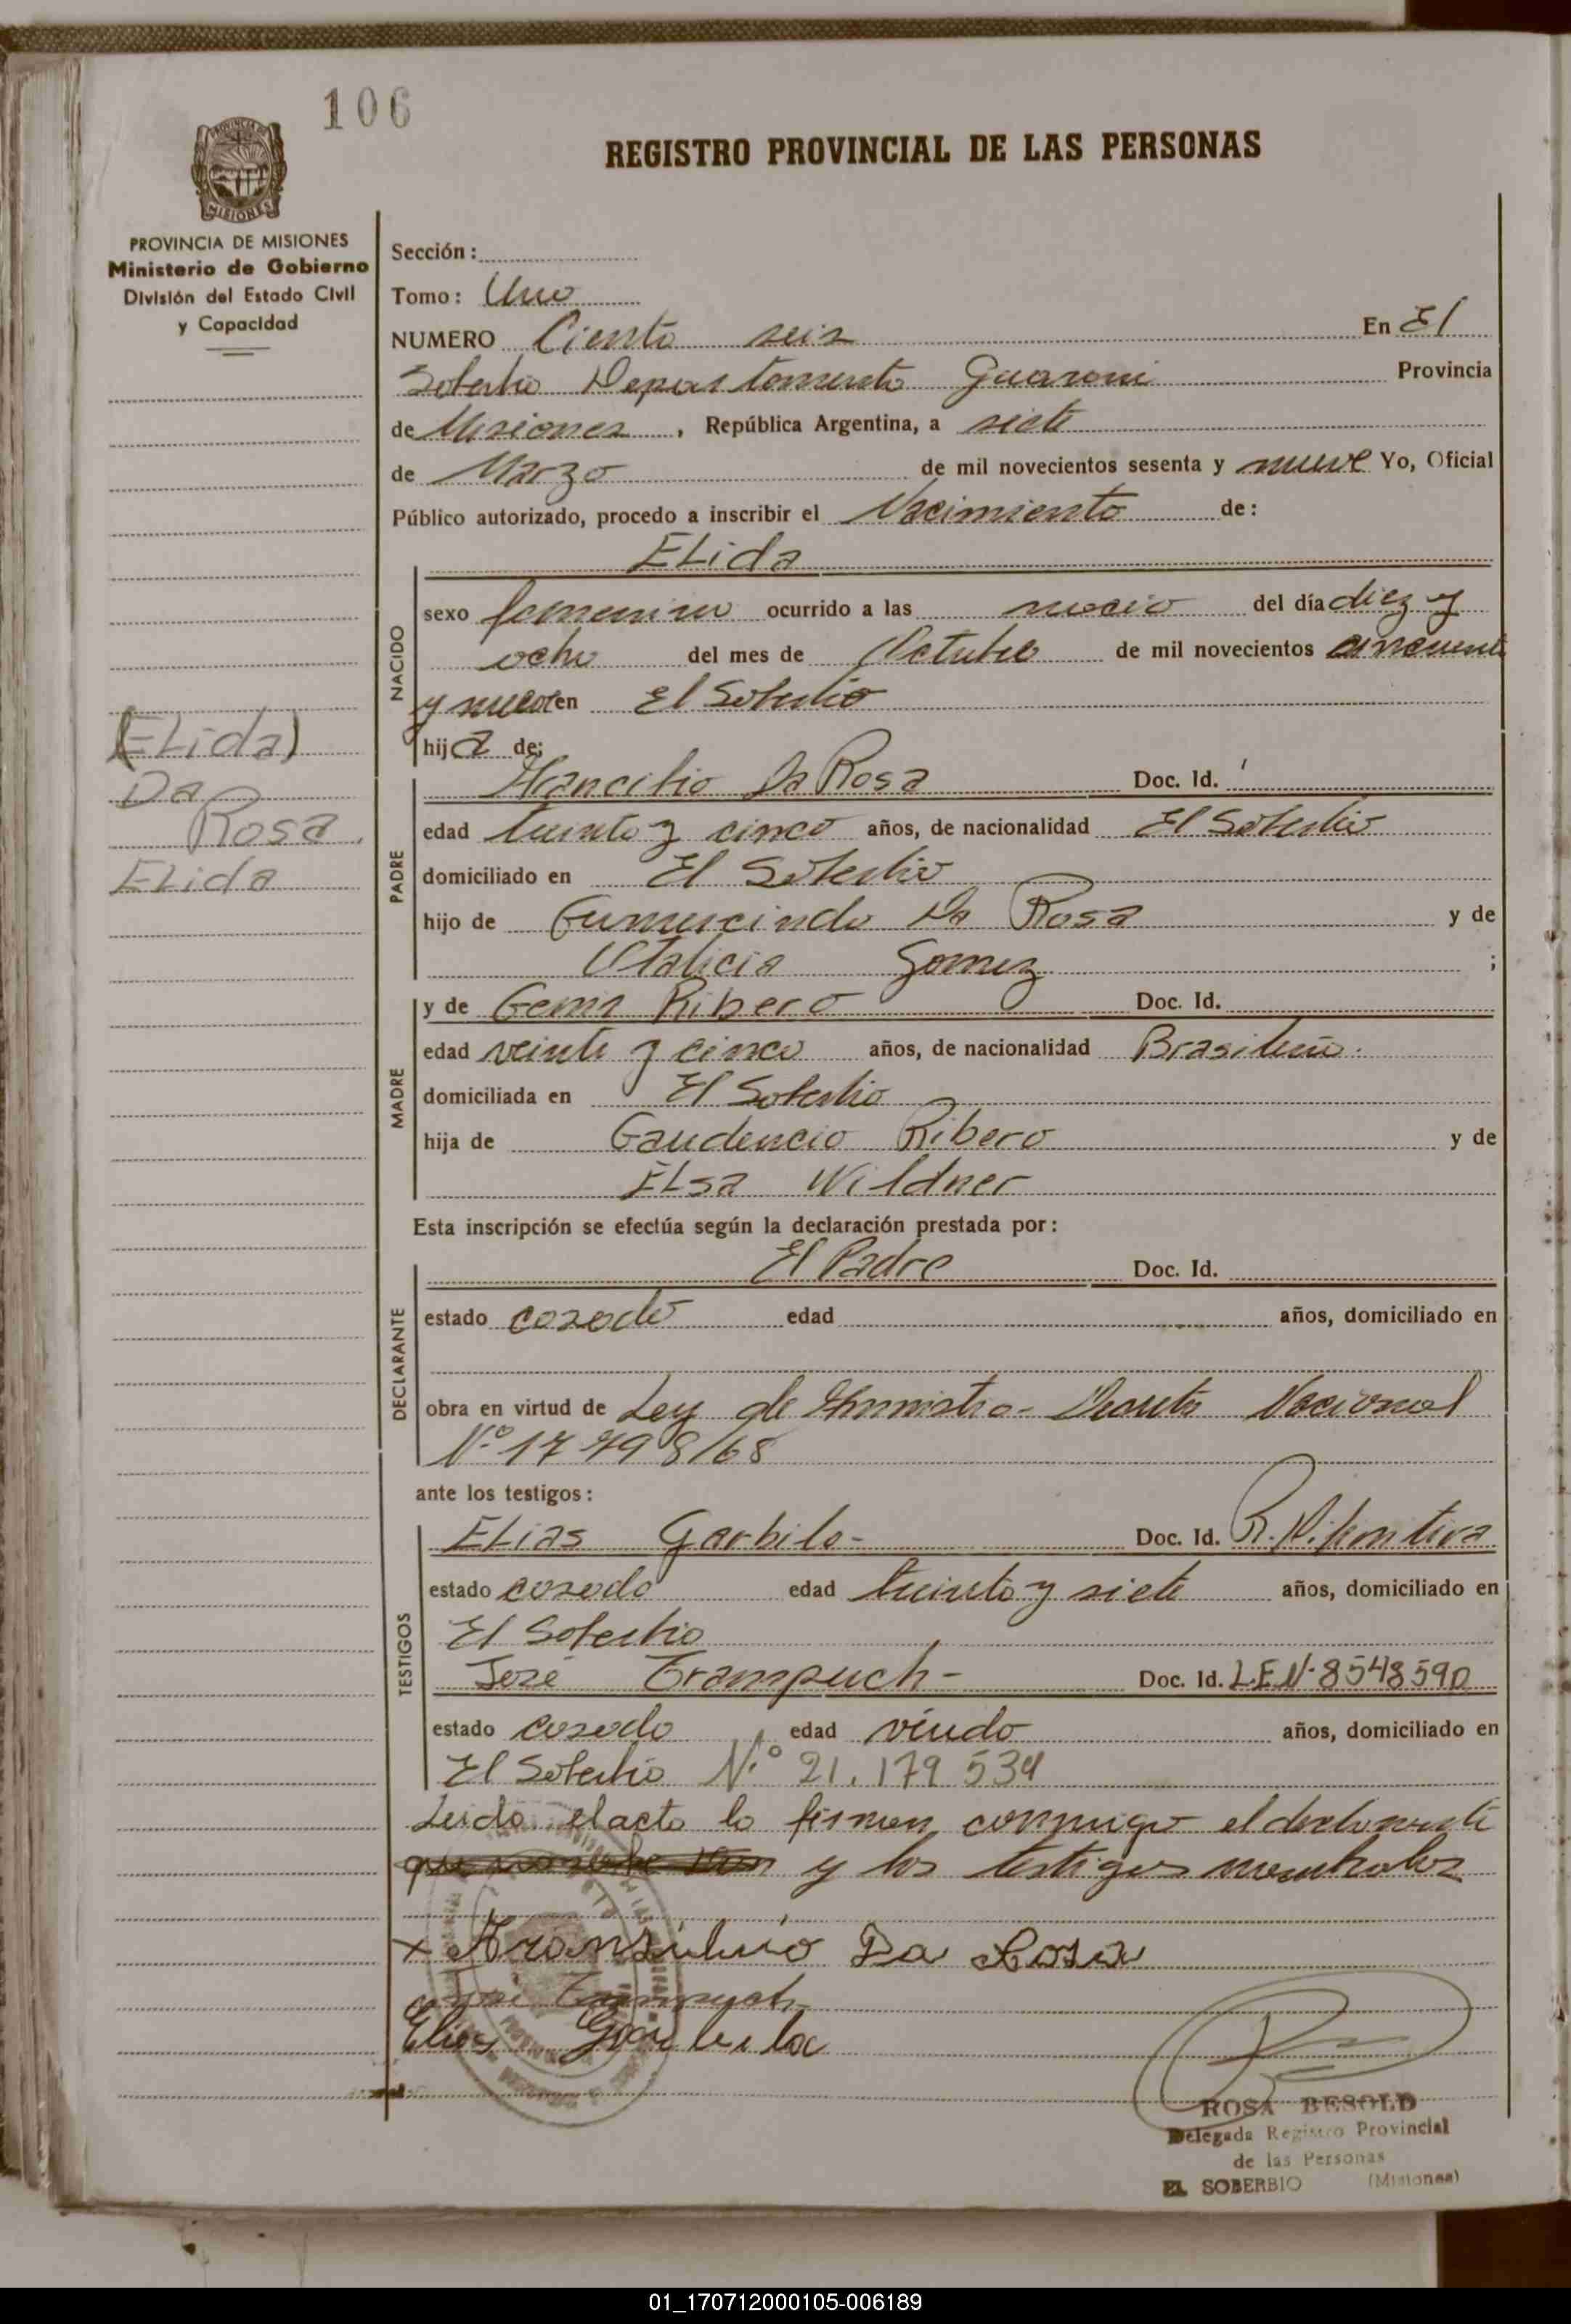 106
REGISTRO PROVINCIAL DE LAS PERSONAS
PROVINCIA DE
MISIONES
PROVINCIA DE MISIONES
Ministerio de Gobierno
División del Estado Civil
y Capacidad
Sección:
Tomo: Uno
NUMERO Ciento seis En El
Soberbio Departamento Guarani Provincia
de Misiones, República Argentina, a siete
de Marzo de mil novecientos sesenta y nueve Yo, Oficial
Público autorizado, procedo a inscribir el Nacimiento de:
ELida
NACIDO
sexo femenino ocurrido a las del día diez y
ocho del mes de Octubre de mil novecientos cincuenta
y nueve en El Soberbio
hija de:
(ELida)
Da
Rosa
ELida
PADRE
Arancibio Da Rosa Doc. Id.
edad treinta y cinco años, de nacionalidad El Soberbio
domiciliado en El Soberbio
hijo de Gumercindo Da Rosa y de
Otalicia Gomez ;
MADRE
y de Gema Ribero Doc. Id.
edad veinte y cinco años, de nacionalidad Brasileña.
domiciliada en El Soberbio
hija de Gaudencio Ribero y de
ELsa Wildner
Esta inscripción se efectúa según la declaración prestada por:
DECLARANTE
El Padre Doc. Id.
estado casado edad años, domiciliado en
obra en virtud de Ley de Decreto Nacional
Nº 17
ante los testigos:
TESTIGOS
ELias Garbilo- Doc. Id.
estado casado edad treinta y siete años, domiciliado en
El Soberbio
José Trampuch- Doc. Id. L.E.N. 8548590
estado casado edad viudo años, domiciliado en
El Soberbio N.º 21.179.534
Leido el acto lo firman conmigo el declarante
y los testigos
x Da Rosa
José Trampuch
Elias
ROSA BESOLD
Delegada Registro Provincial
de las Personas
EL SOBERBIO (Misiones)
01_170712000105-006189